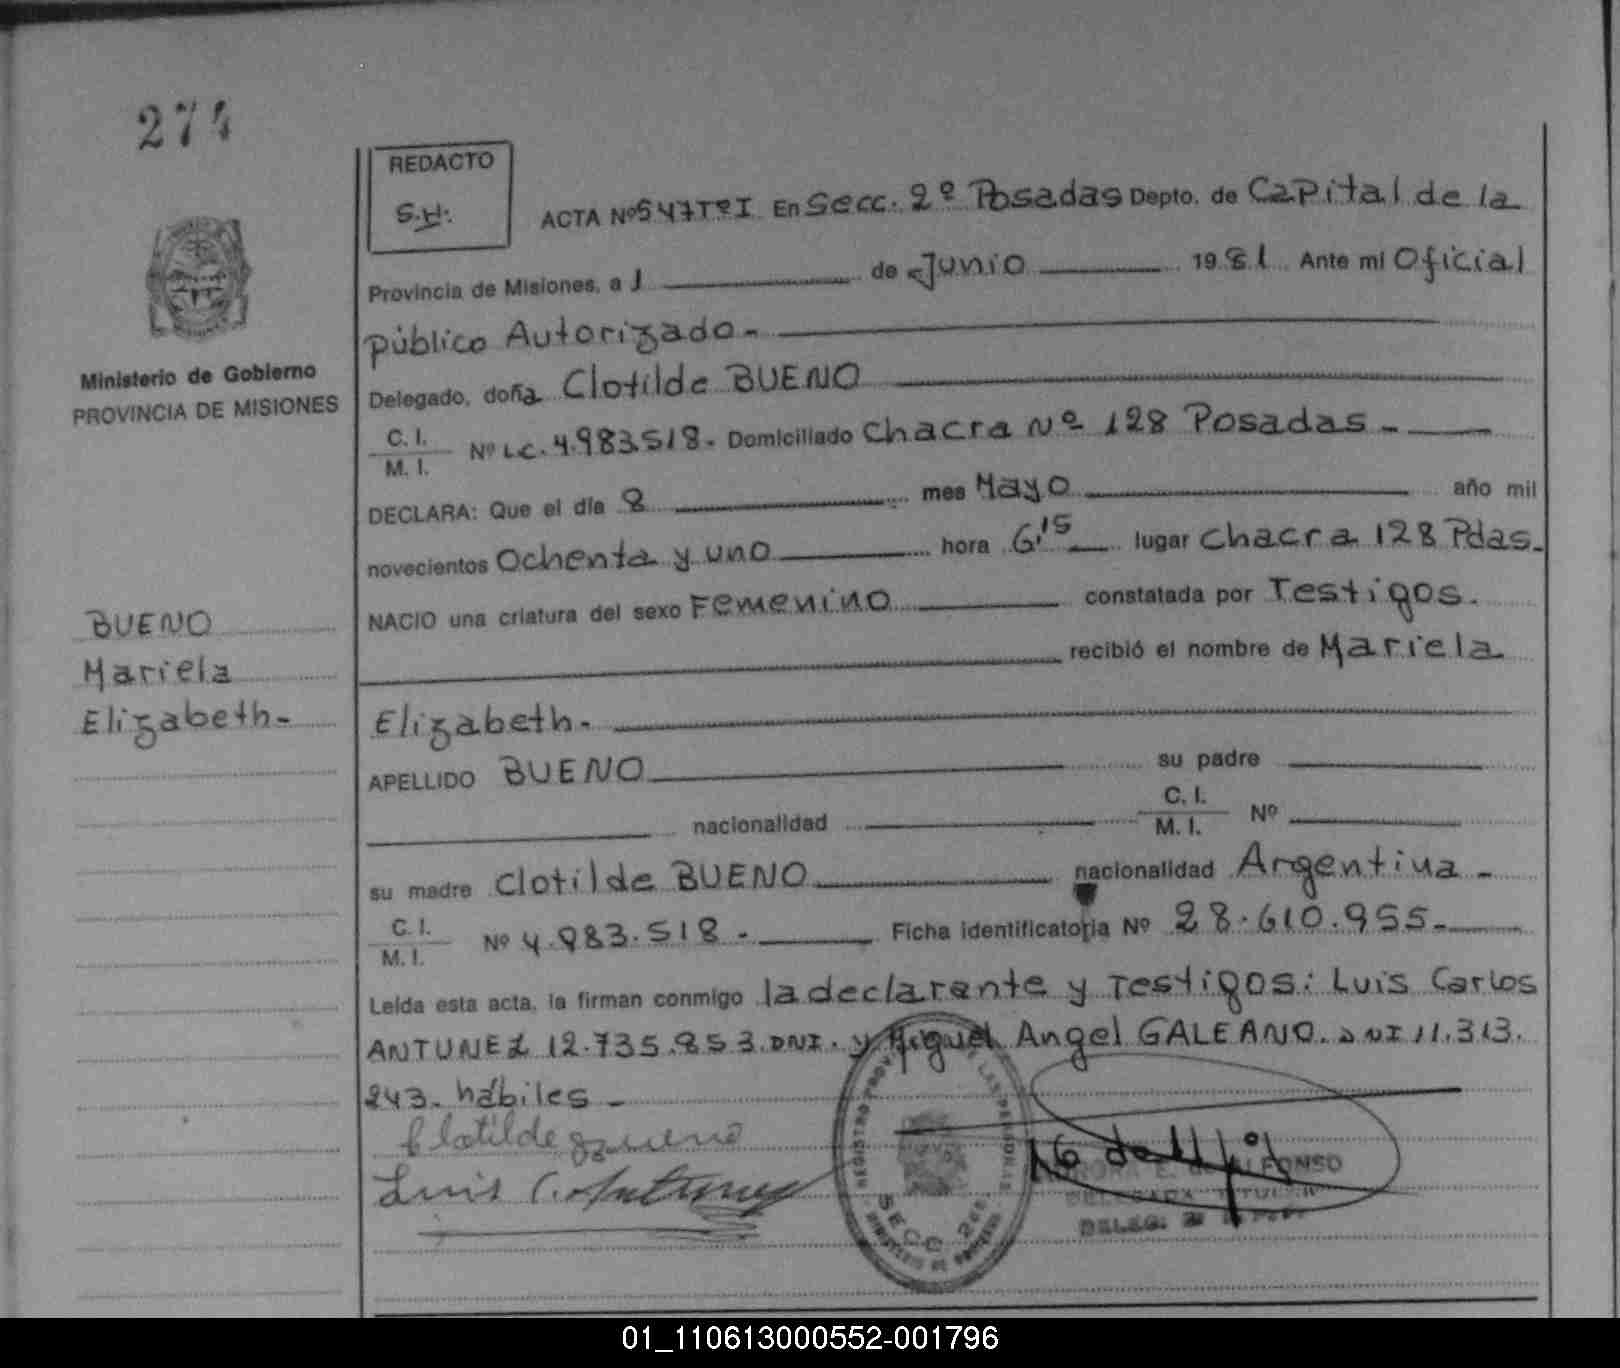 274
REDACTO
S.H:
ACTA Nº 547 Tº I En Secc. 2º Posadas Depto. de Capital de la
Provincia de Misiones, a 1 de Junio 1981 Ante mí Oficial
público Autorizado.-
Delegado, doña Clotilde BUENO
C. I.
M. I. Nº L.C. 4.983.518. Domiciliado Chacra Nº 128 Posadas.-
DECLARA: Que el día 8 mes Mayo año mil
novecientos Ochenta y uno hora 6,15 lugar Chacra 128 Pdas.
NACIO una criatura del sexo Femenino constatada por Testigos.
recibió el nombre de Mariela
Elizabeth.
APELLIDO BUENO su padre
nacionalidad C. I.
M. I. Nº
su madre Clotilde BUENO nacionalidad Argentina.-
C. I.
M. I. Nº 4.983.518.- Ficha identificatoria Nº 28.610.955.-
Leída esta acta, la firman conmigo la declarante y Testigos: Luis Carlos
ANTUNEZ 12.735.853 DNI. y Miguel Angel GALEANO. DNI 11.313.
243. hábiles.-
Clotilde Bueno
Luis C. Antunez
Ministerio de Gobierno
PROVINCIA DE MISIONES
BUENO
Mariela
Elizabeth-
SECC 2da
ALFONSO
DELEGADA TITULAR
DELEG.
01_110613000552-001796